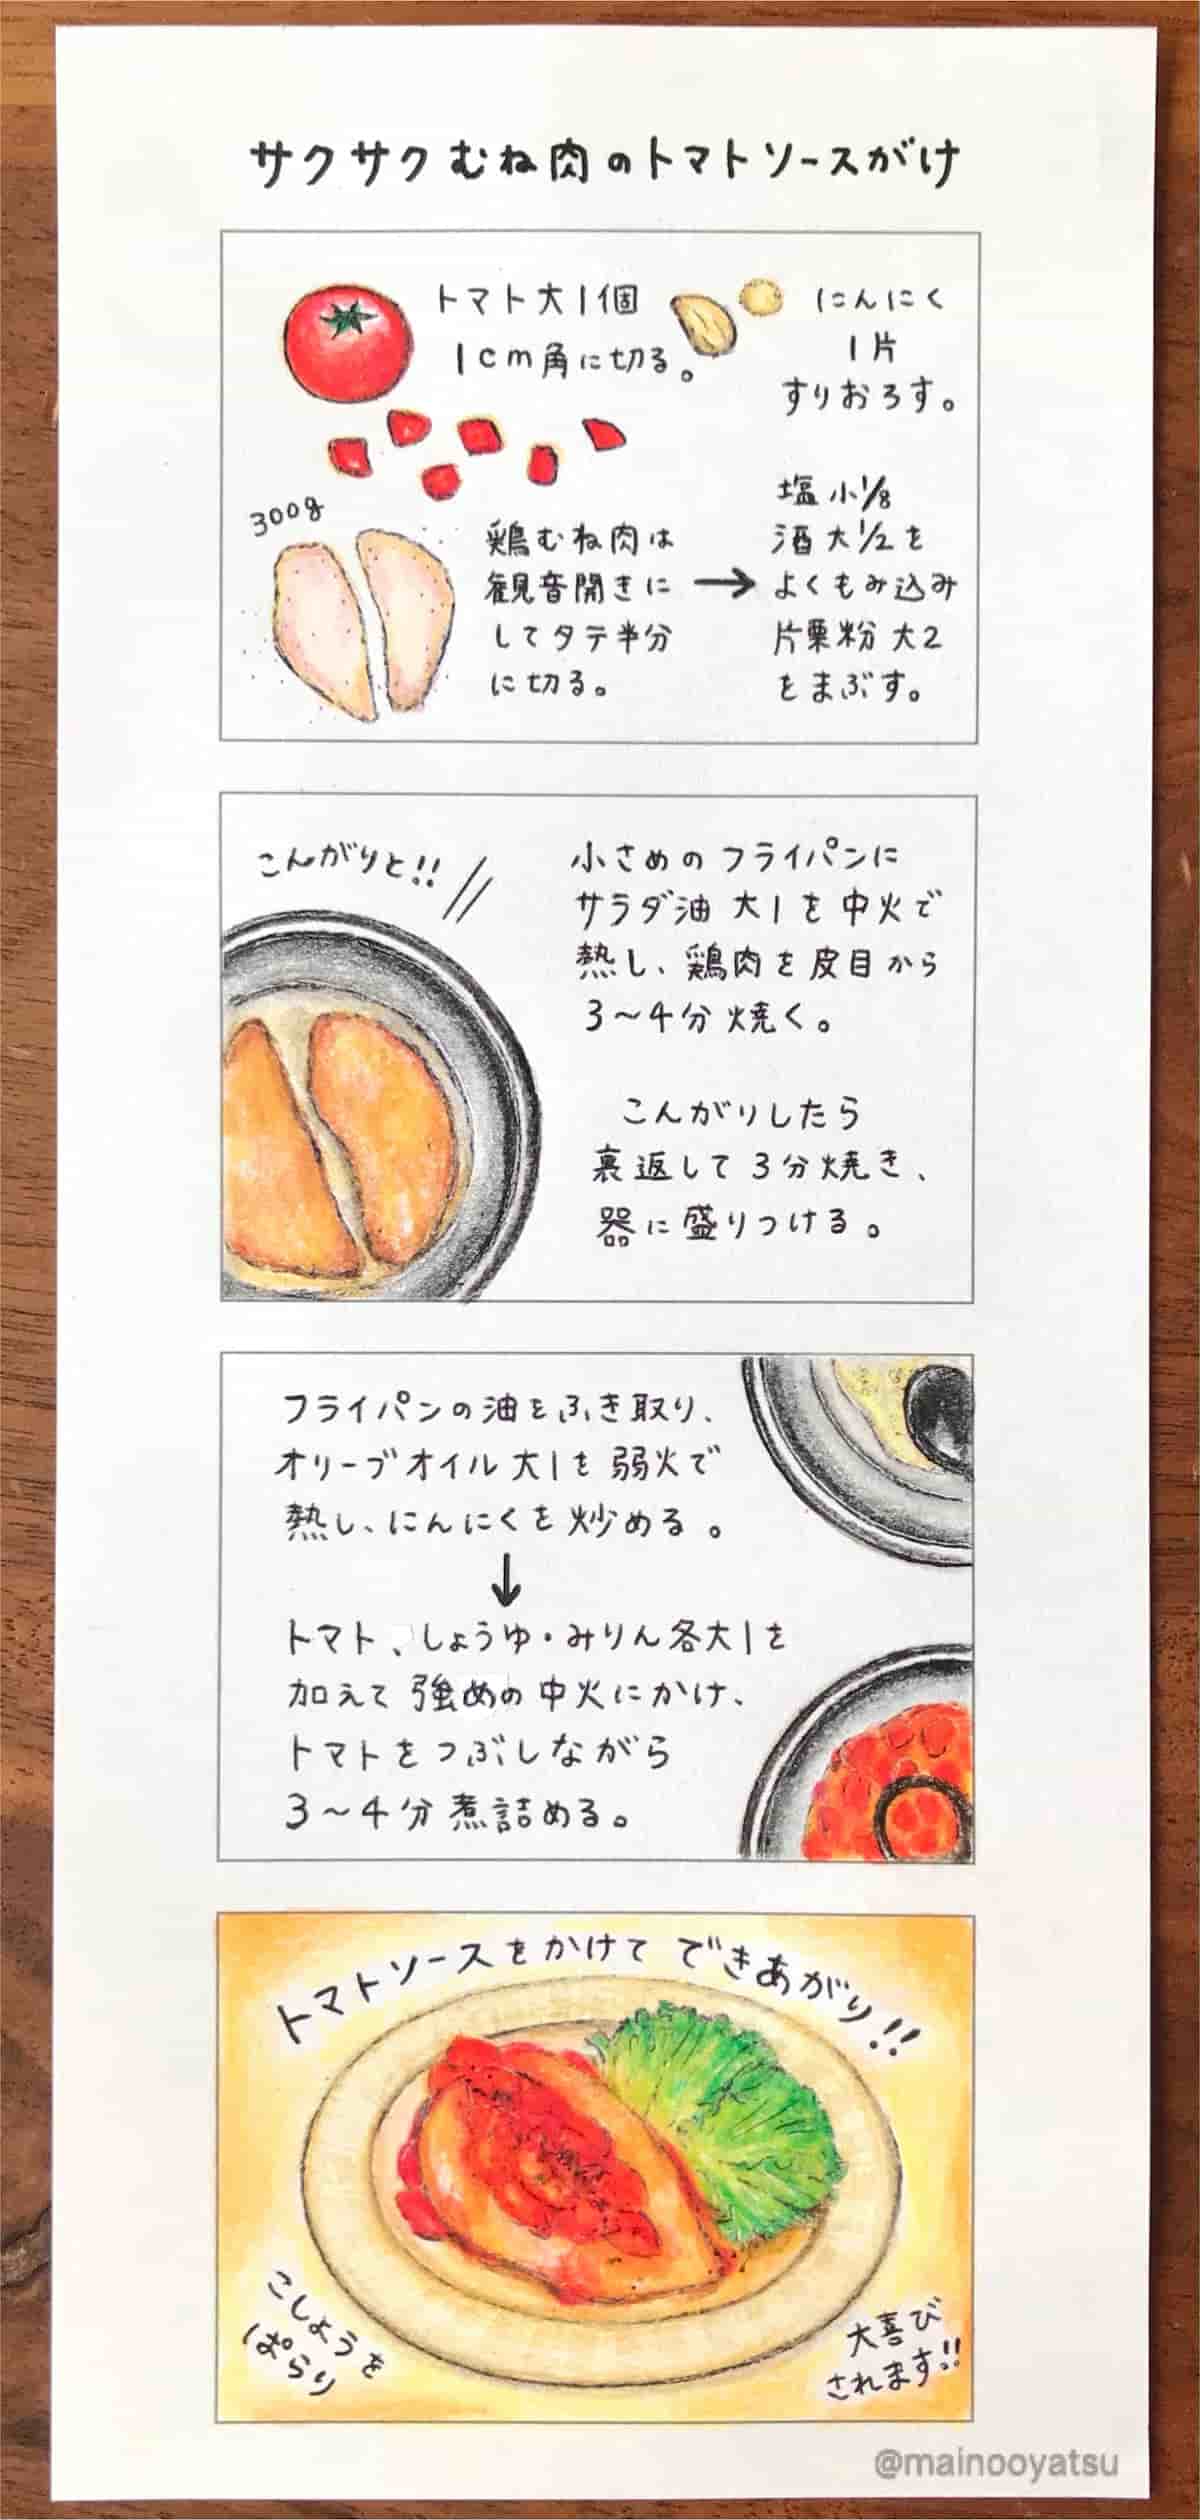 サクサクむね肉のトマトソースがけ
トマト大1個
1cm角に切る。
にんにく
1片
すりおろす。
300g
鶏むね肉は
観音開きに
してタテ半分
に切る。
→
塩小1/8
酒大1/2を
よくもみ込み
片栗粉大2
をまぶす。
こんがりと!!
小さめのフライパンに
サラダ油大1を中火で
熱し、鶏肉を皮目から
3〜4分焼く。
こんがりしたら
裏返して3分焼き、
器に盛りつける。
フライパンの油をふき取り、
オリーブオイル大1を弱火で
熱し、にんにくを炒める。
↓
トマト、しょうゆ・みりん各大1を
加えて強めの中火にかけ、
トマトをつぶしながら
3〜4分煮詰める。
トマトソースをかけてできあがり!!
こしょうを
ぱらり
大喜び
されます!!
@mainooyatsu